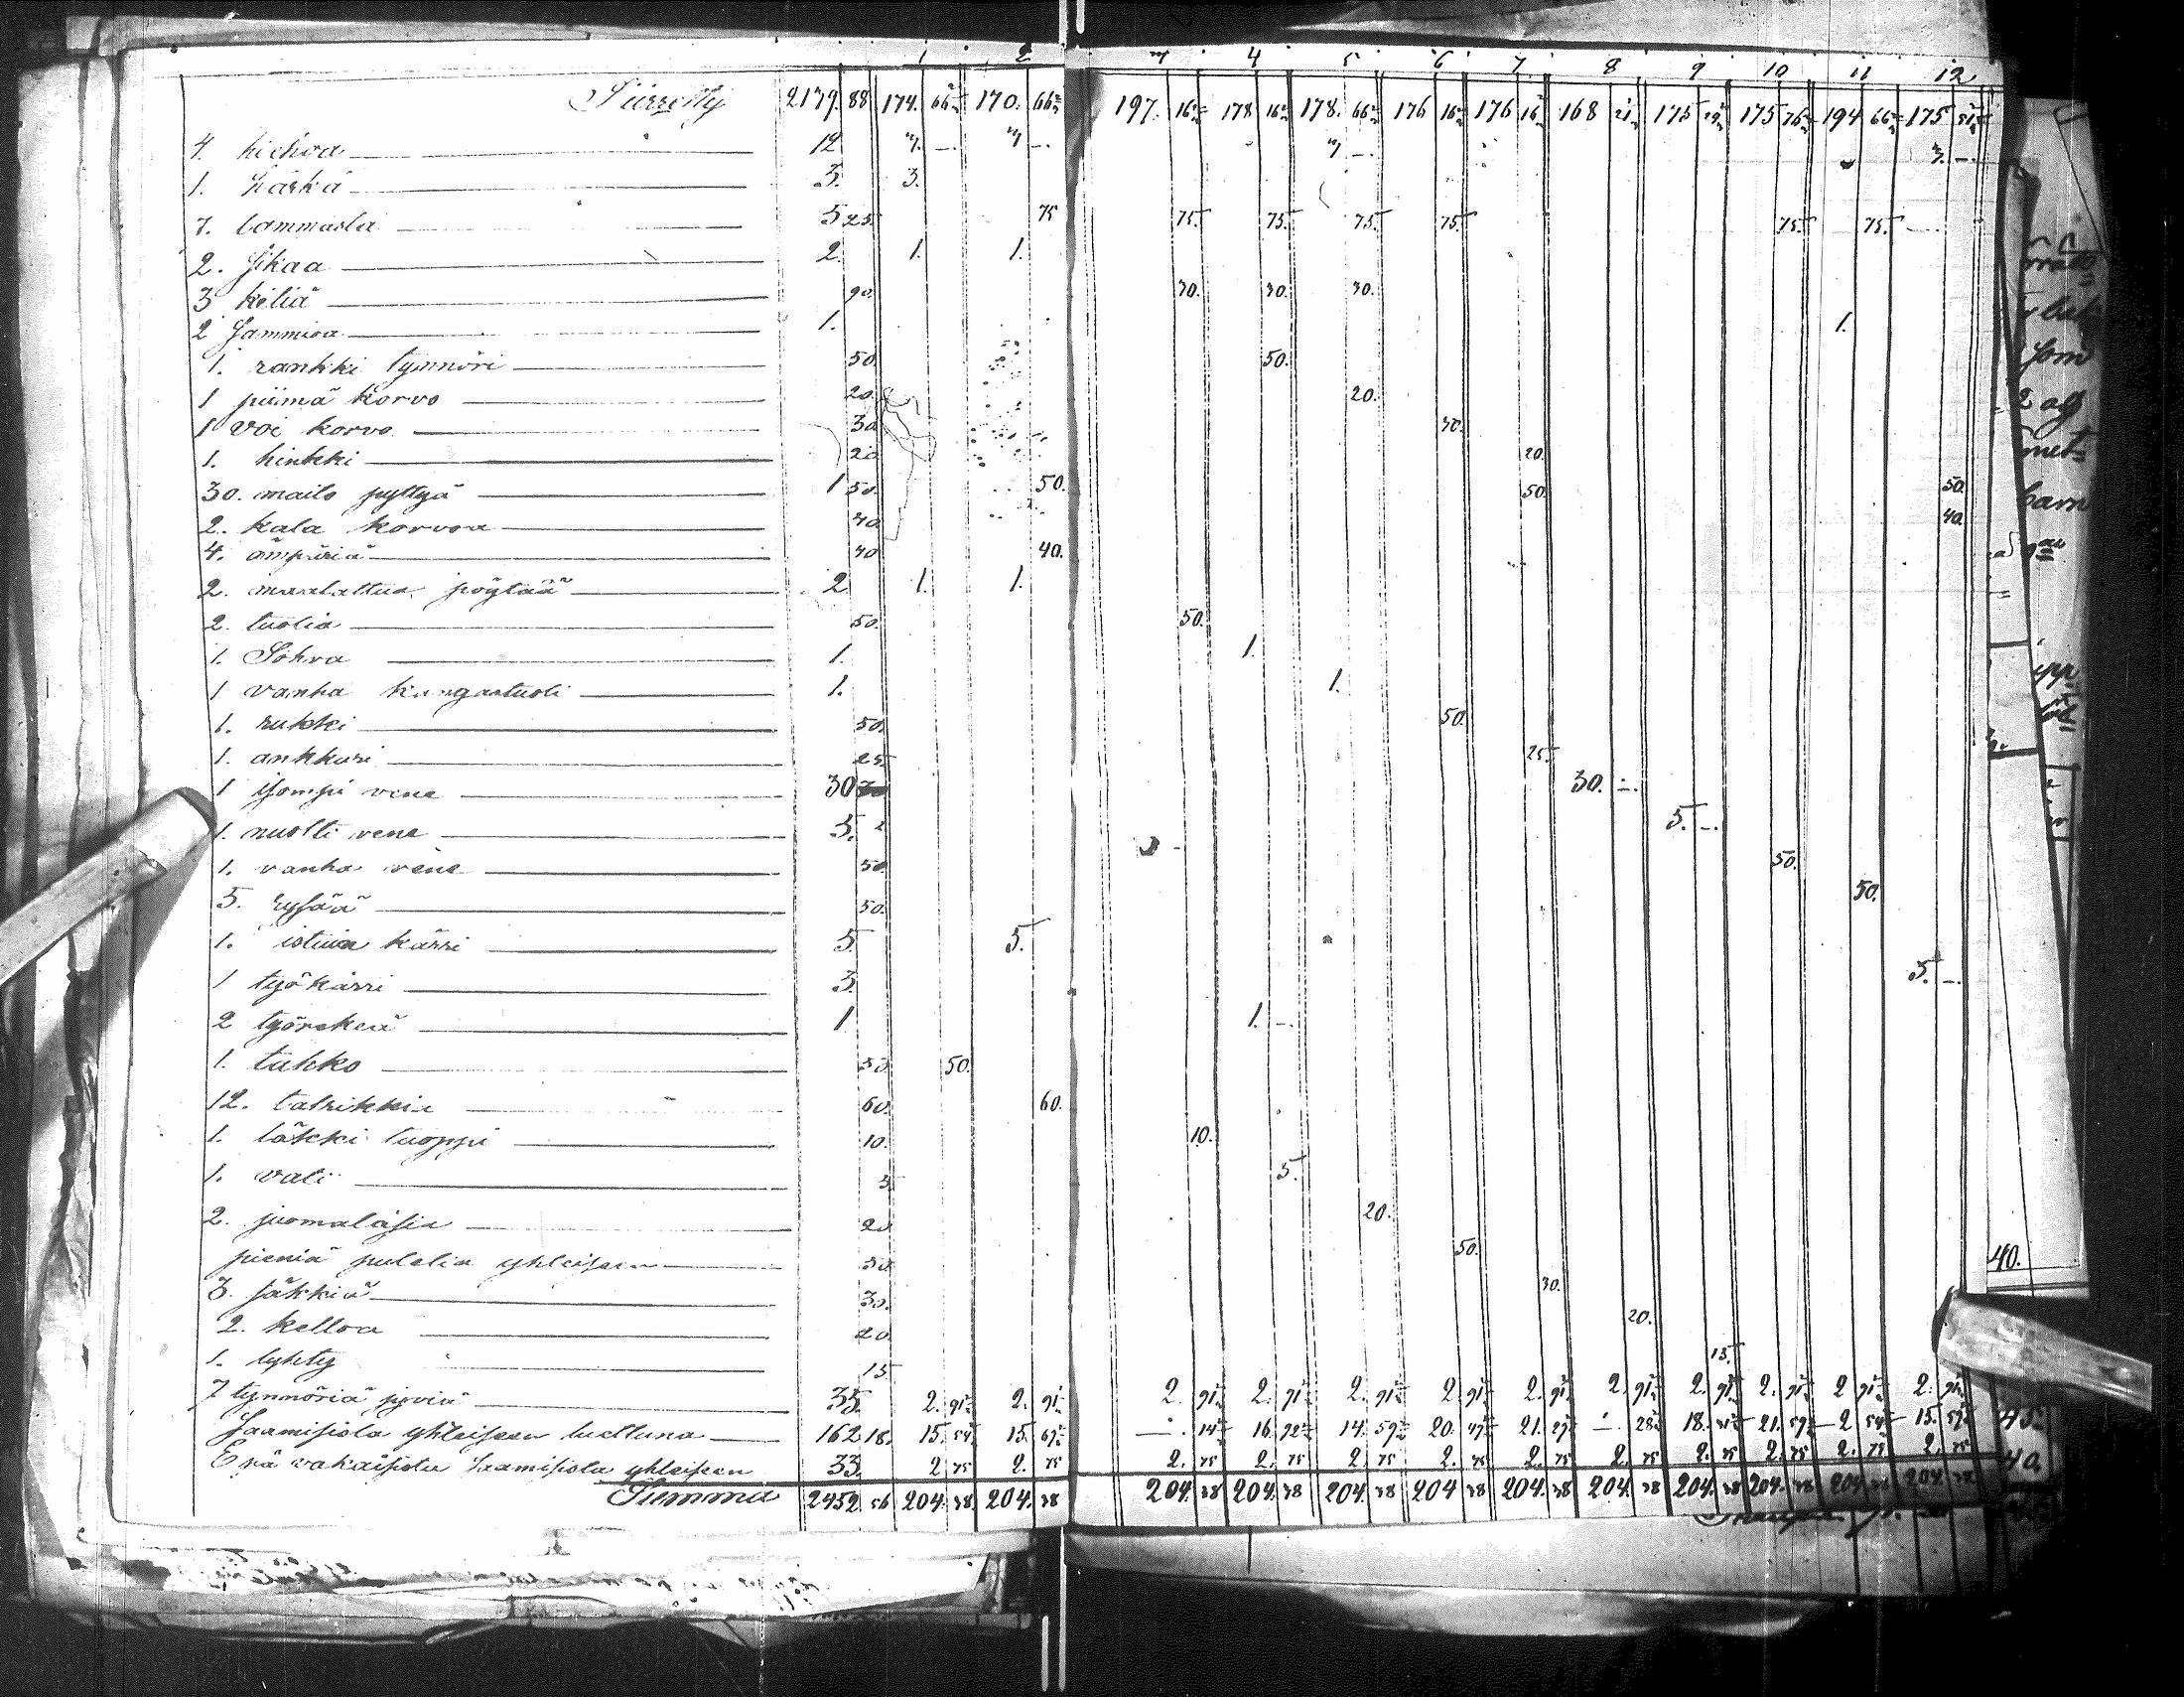 1 2 3 4 5 6 7 8 9 10 11 12
Siirretty 2179. 88 174. 66 170. 66 197. 16 178 16 178. 66 176 16 176 16 168 21 175 29 175 76 194 66 175 51
4. hiehoa 12 3. – 3 – 3 – 3. –
1. härkä 3. 3.
7. lammasta 5 25. 75 75. 75. 75. 75. 75. 75.
2. sikaa 2. 1. 1.
3 kiliä 90. 30. 30. 30.
2 Sammioa 1. 1.
1. rankki tynnöri 50. 50.
1 piimä korvo 20. 20.
1 voi korvo 30 30.
1. hinkki 20 20.
30. maito pyttyä 1 50. 50. 50. 50.
2. kala korvoa 40 40.
4. ämpäriä 40 40.
2. maalattua pöytää 2 1. 1.
2. tuolia 50. 50.
1. Sohva 1. 1.
1 vanha kangastuoli 1. 1.
1. rukki 50. 50.
1. ankkuri 25 25.
1 isompi vene 30 30. –
1. nuotti vene 5. 5. –
1. vanha vene 50 50.
5. rysää 50. 50.
1. istuin kärri 5. 5.
1 työkärri 3. 3. –
2 työrekeä 1 1. –
1. tahko 50 50.
12. talrikkia 60. 60.
1. läkki tuoppi 10. 10.
1. vati 5. 5.
2. juomalasia 20 20.
pieniä putelia yhteiseen 50. 50.
3. säkkiä 30. 30.
2. kelloa 20. 20.
1. lyhty 15 15.
7 tynnöriä jyviä 35. 2. 91 2. 91 2. 91 2. 91 2. 91 2 91 2. 91 2. 91 2. 91 2. 91 2 91 2. 91
Saamisiota yhteiseen luettuna 162 18. 15. 54 15. 67 – 14 16. 72 14. 59 20. 47 21. 27 – 28 18. 21. 59 2 54 15. 57
Epä vakaisista saamisiota yhteiseen 33. 2 75 2. 75 2. 75 2. 75 2. 75 2. 75 2. 75 2. 75 2. 75 2. 75 2. 75 2. 75
Summa 2452. 56 204. 38 204. 38 204. 38 204. 38 204. 38 204 38 204. 38 204. 38 204. 38 204. 38 204 38 204. 38
40.